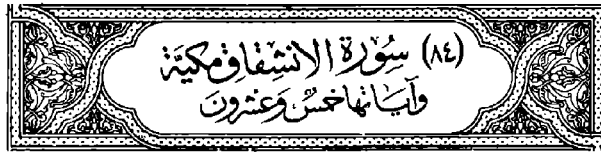 (٨٤) سُورَةُ الانْشِقَاقِ مَكِيَّة
وَآيَاتهَا خَمْسٌ وَعِشْرُونَ